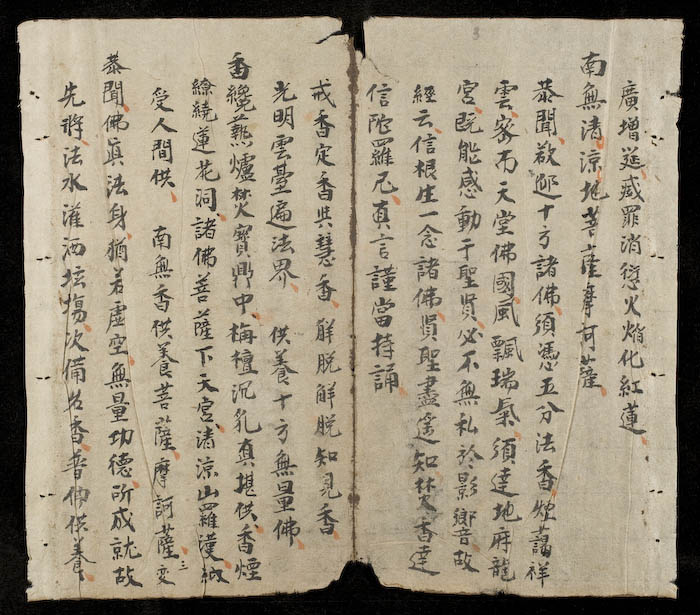 廣增筵滅罪消愆火焰化紅蓮
南無清涼地菩薩摩訶薩
恭聞欲迎十方諸佛須憑五分法香煙藹祥
雲密布天堂佛國風飄瑞氣須達地府龍
宮既能感動于聖賢必不無私於影響故
經云信根生一念諸佛賢聖盡遙知焚香達
信陀羅尼真言謹當持誦
戒香定香與慧香 解脫解脫知見香
光明雲臺遍法界 供養十方無量佛
香纔爇爐焚寶鼎中栴檀沉乳真堪供香煙
繚繞蓮花洞諸佛菩薩下天宮清涼山羅漢納
受人間供 南無香供養菩薩摩訶薩三变
恭聞佛真法身猶若虛空無量功德所成就故
先將法水灌洒坛場次備名香普伸供養